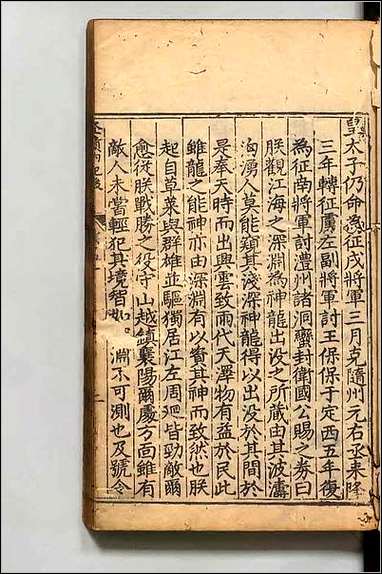 皇太子仍命為征戍將軍三月克隨州元右丞來降
三年轉征虜左副將軍討王保保于定西五年復
為征南將軍討澧州諸洞蠻封衛國公賜之券曰
朕觀江海之深淵為神龍出没之所歲由其波濤
洶湧人莫能窺其淺深神龍得以出没於其間於
是奉天時而出興雲致雨代天澤物有益於民此
雖龍之能神亦由深淵有以資其神而致然也朕
起自草萊與群雄並驅獨居江左周廻皆勁敵爾
愈從朕戰勝之役守 山越鎮襄陽爾處方面雖有
敵人未嘗輕犯其境智如 淵不可測也及號令